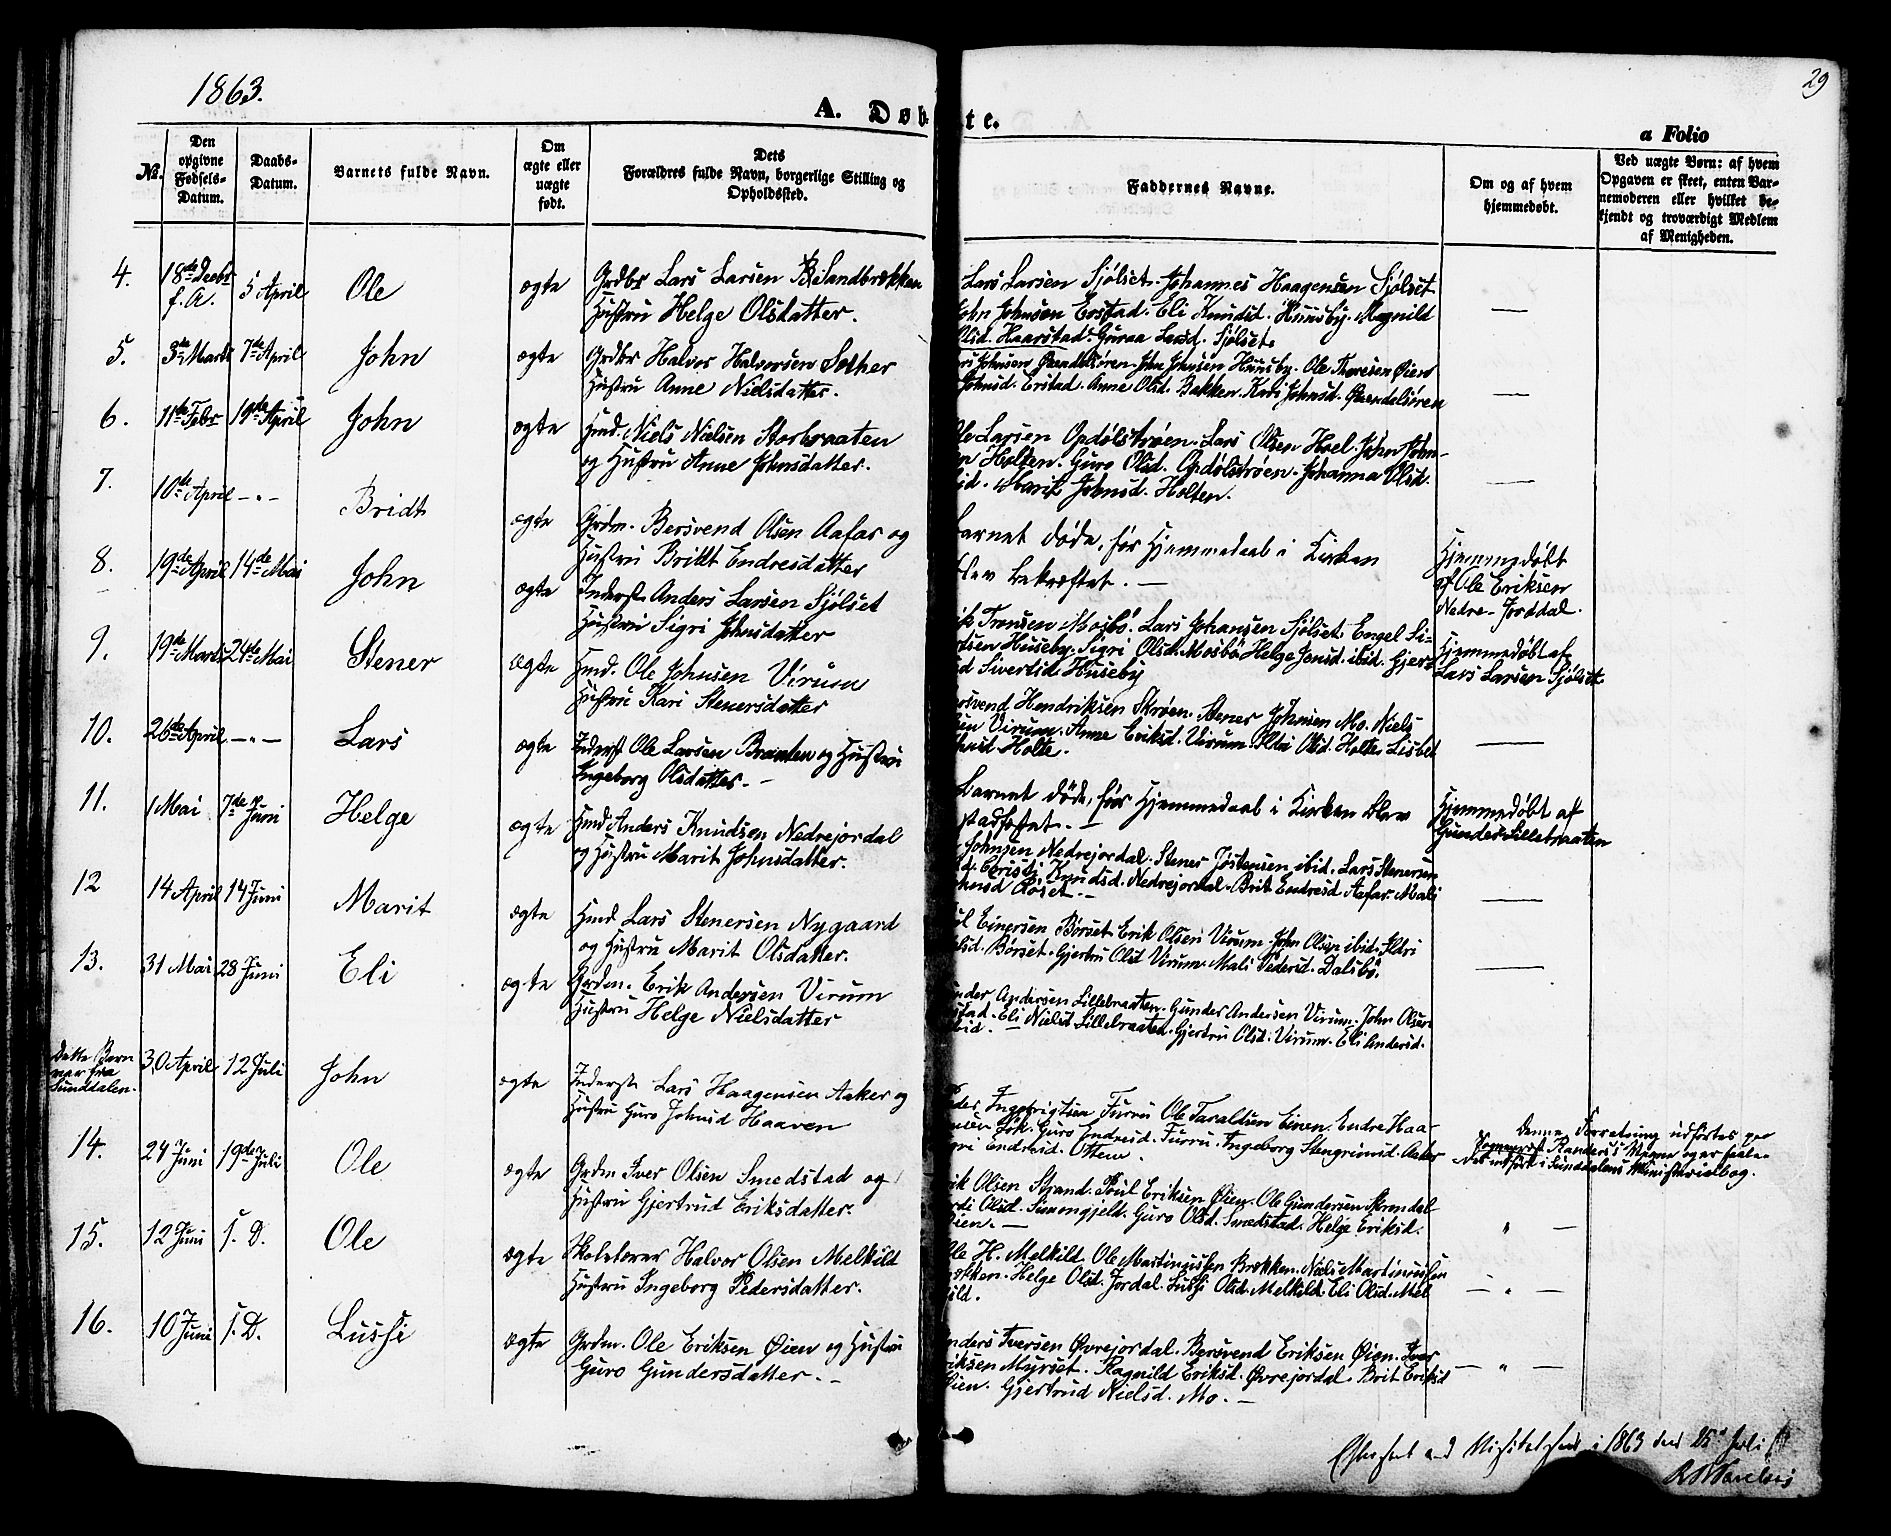 1863.
29
A. Døb te.
a Folio
No.
Den
opgivne
Fødsels-
Datum.
Daabs-
Datum.
Barnets fulde Navn.
Om
ægte eller
uægte
født.
Dets
Forældres fulde Navn, borgerlige Stilling og
Opholdssted.
Faddernes Navne.
Om og af hvem
hjemmedøbt.
Ved uægte Børn: af hvem
Opgaven er skeet, enten Bar-
nemoderen eller hvilket be-
kjendt og troværdigt Medlem
af Menigheden.
4. 18de Decbr f. A. 5 April Ole ægte
Grdbr Lars Larsen Sandbrækken
Hustru Helge Olsdatter.
Lars Larsen Sjølset. Johannes Haagensen Sjølset
John Johnsen Erstad. Eli Knudsd. Huusby. Magnild
Olsd. Haarstad. Guraa Larsd. Sjølset.
5. 3de Marts 7de April John ægte
Grdbr Halvor Halvorsen Sæther
Hustru Anne Nielsdatter.
Johnsen Qvendelsøren. John Johnsen Huusby. Ole Thoresen Øien
Johnsd. Erstad. Anne Olsd. Bakken. Kari Johnsd. Qvendelsøren
6. 11te Febr 19de April John ægte
Hmd. Niels Nielsen Storbraaten
og Hustru Anne Johnsdatter.
Ole Larsen Opdølstrøen. Lars Olsen Hoel. John John-
en Holten. Guro Olsd. Opdølstrøen. Johanna Olsd.
ibid. Marit Johnsd. Holten.
7. 10de April — " — Bridt ægte
Grdm. Bersvend Olsen Aafar og
Hustru Brit Endresdatter
Barnet døde, før Hjemmedaab i Kirken
blev bekræftet. —
Hjemmedøbt
af Ole Eriksen
Nedre-Jorddal.
8. 19de April 14de Mai John ægte
Inderst Anders Larsen Sjølset
Hustru Sigri Johnsdatter
Tronsen Mosbø. Lars Johansen Sjølset. Engel Si-
ertsen Huseby. Sigri Olsd. Mosbø Helge Jonsd. ibid. Gjer-
d Sivertsd. Huseby
Hjemmedøbt af
Lars Larsen Sjølset.
9. 19de Marts 24de Mai Stener ægte
Hmd. Ole Johnsen Virum
Hustru Kari Stenersdatter
ersvend Hendriksen Skrøen. Stener Johnsen Mo. Niels
sen Virum. Anne Eriksd. Virum. Ildri Olsd. Holte. Lisbet
hnsd Holte.
10. 26de April — " — Lars ægte
Inderst Ole Larsen Braaten og Hustru
Ingeborg Olsdatter. —
Barnet døde, før Hjemmedaab i Kirken blev
stadfæstet. —
Hjemmedøbt af
Gunder Lillebraaten
11. 1 Mai 7de Juni Helge ægte
Hmd Anders Knudsen Nedrejordal
og Hustru Marit Johnsdatter.
Johnsen Nedrejordal. Stener Jøstensen ibid. Lars Stenersen
d. Ciristi Knudsd. Nedrejordal. Brit Endresd Aafar. Mali
hnsd Røset. —
12 14 April 14 Juni Marit ægte
Hmd Lars Stenersen Nygaard
og Hustru Marit Olsdatter.
ul Einersen Børset. Erik Olsen Virum. John Olsen ibid. Ildri
Olsd. Børset. Gjertru Olsd Virum. Mali Pedersd. Dalsbø.
13. 31 Mai 28 Juni Eli ægte
Grdm. Erik Andersen Virum
Hustru Helge Nielsdatter
under Andersen Lillebraaten. Gunder Andersen Virum. John Olsen
stad. Eli Nielsd Lillebraaten. Gjertru Olsd. Virum. Eli Andersd.
ibid. —
Dette Barn
var fra
Sunddalen.
30 April 12 Juli John ægte
Inderst Lars Haagensen Aaker og
Hustru Guro Johnsd Haaven
eder Ingebrigtsen Furru Ole Taraldsen Einen. Endre Haa-
Guro Endresd. Furru. Ingeborg Stengrimsd. Aaker
gri Endresd. Ottem.
Denne Forretning udførtes paa
14. 24 Juni 19de Juli Ole ægte
Grdm Iver Olsen Smedstad og
Hustru Gjertrud Eriksdatter.
rik Olsen Strand. Poul Eriksen Øien. Ole Gundersen Skrøndal
Olsd. Simengjeld. Guro Olsd. Smedstad. Helge Eriksd.
Øien. —
15. 12 Juni s. D. Ole ægte
Skolelærer Halvor Olsen Melkild
Hustru Ingeborg Pedersdatter.
Ole H. Melkild. Ole Martinussen Brækken. Niels Martinussen
ækken. Helge Olsd. Jordal. Lussi Olsd. Melkild. Eli Olsd. Mel
kild.
16. 10 Juni s. D. Lussi ægte
Grdm. Ole Eriksen Øien og Hustru
Guro Gundersdatter. —
Anders Iversen Øvrejordal. Bersvend Eriksen Øien. Iver
riksen Myrset. Ragnild Eriksd. Øvrejordal. Brit Eriksd
Øien. Gjertrud Nielsd. Mo. —
Efterseet ved Visitatsen i 1863 den 25de Juli